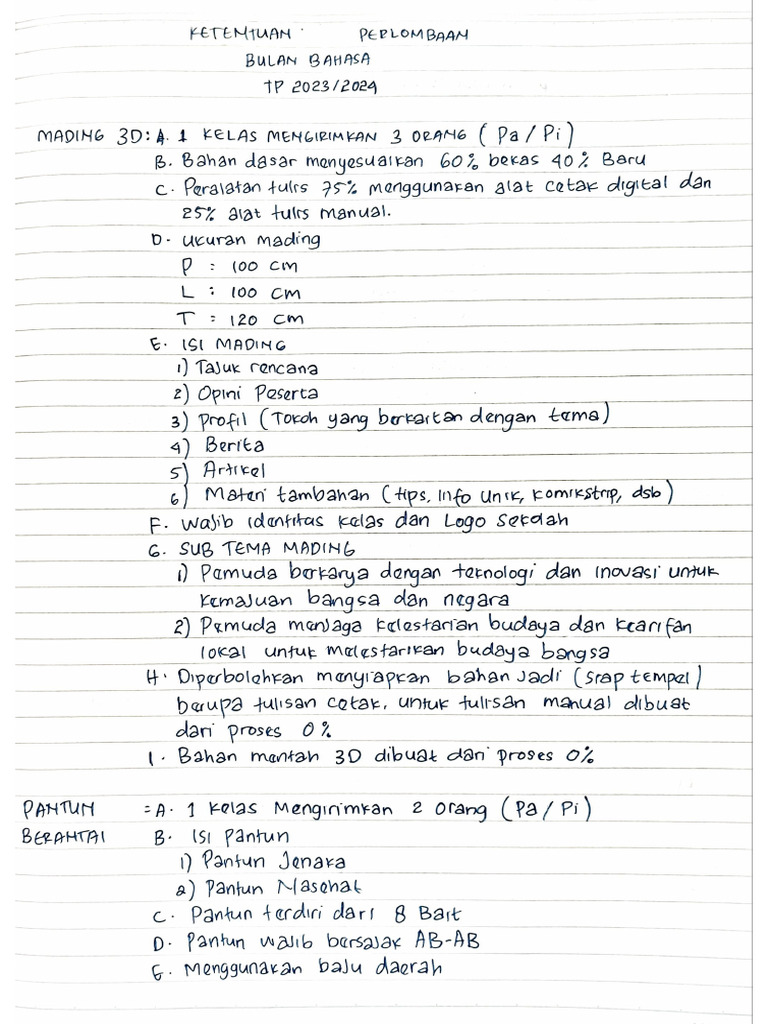 KETENTUAN PERLOMBAAN
BULAN BAHASA
TP 2023/2024
MADING 3D : A. 1 KELAS MENGIRIMKAN 3 ORANG (Pa/Pi)
B. Bahan dasar menyesuaikan 60% bekas 40% Baru
C. Peralatan tulis 75% menggunakan alat cetak digital dan
25% alat tulis manual.
D. Ukuran mading
P : 100 cm
L : 100 cm
T : 120 cm
E. ISI MADING
1) Tajuk rencana
2) Opini Peserta
3) Profil (Tokoh yang berkaitan dengan tema)
4) Berita
5) Artikel
6) Materi tambahan (tips, Info Unik, komikstrip, dsb)
F. Wajib Identitas kelas dan Logo Sekolah
G. SUB TEMA MADING
1) Pemuda berkarya dengan teknologi dan inovasi untuk
kemajuan bangsa dan negara
2) Pemuda menjaga kelestarian budaya dan kearifan
lokal untuk melestarikan budaya bangsa
H. Diperbolehkan menyiapkan bahan Jadi (siap tempel)
berupa tulisan cetak, untuk tulisan manual dibuat
dari proses 0%
I. Bahan mentah 3D dibuat dari proses 0%
PANTUN = A. 1 kelas Mengirimkan 2 orang (Pa/Pi)
BERANTAI B. Isi Pantun
1) Pantun Jenaka
2) Pantun Nasehat
C. Pantun terdiri dari 8 Bait
D. Pantun wajib bersajak AB-AB
E. Menggunakan baju daerah